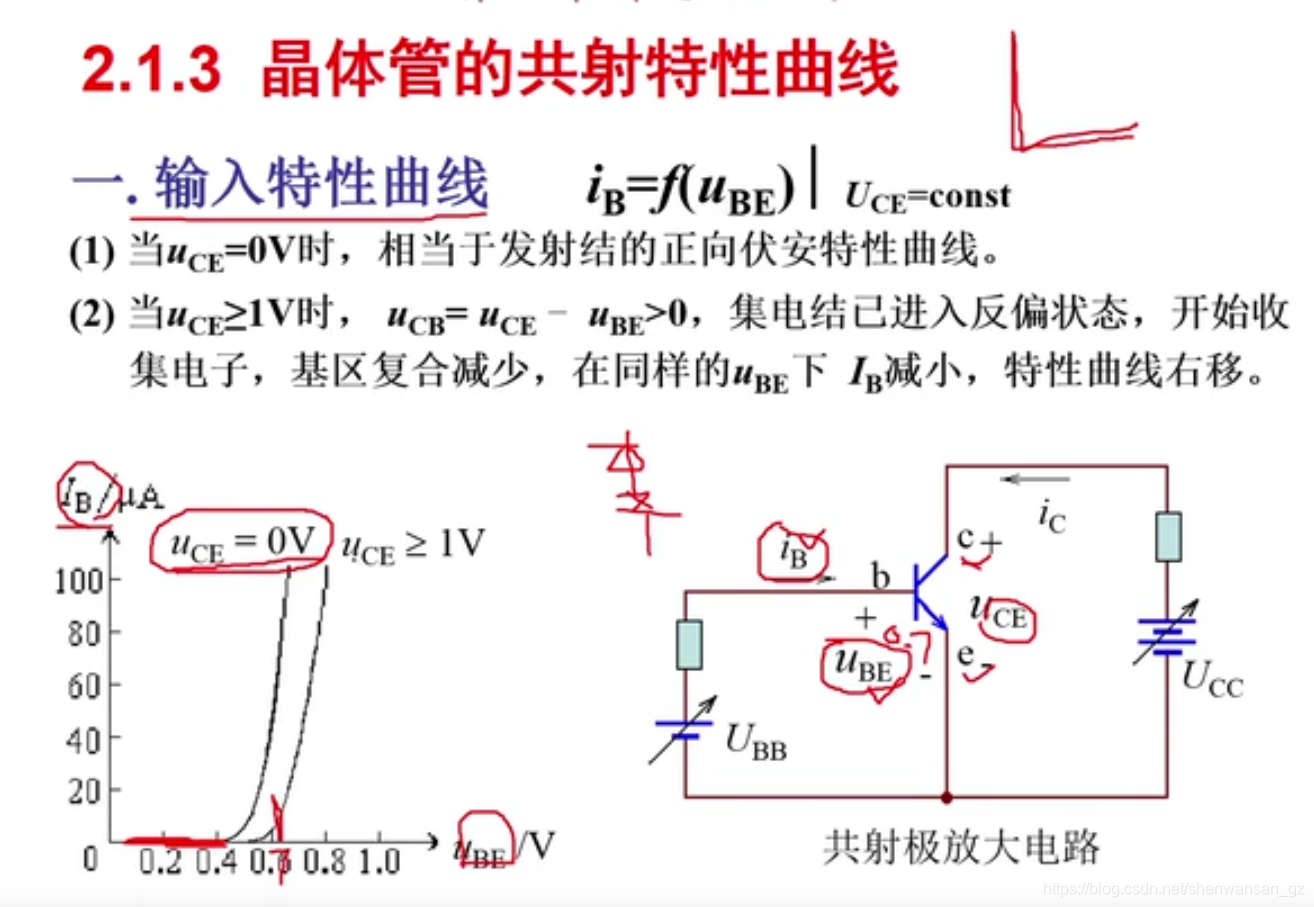 2.1.3 晶体管的共射特性曲线
一.输入特性曲线 iB=f(uBE) | UCE=const
(1) 当uCE=0V时，相当于发射结的正向伏安特性曲线。
(2) 当uCE≥1V时， uCB= uCE - uBE>0，集电结已进入反偏状态，开始收
集电子，基区复合减少，在同样的uBE下 IB减小，特性曲线右移。
IB/μA
uCE = 0V uCE ≥ 1V
100
80
60
40
20
0 0.2 0.4 0.6 0.8 1.0 uBE/V
iC
c +
iB
b
+
uCE
0.7
uBE -
e -
UCC
UBB
共射极放大电路
https://blog.csdn.net/shenwansan_gz